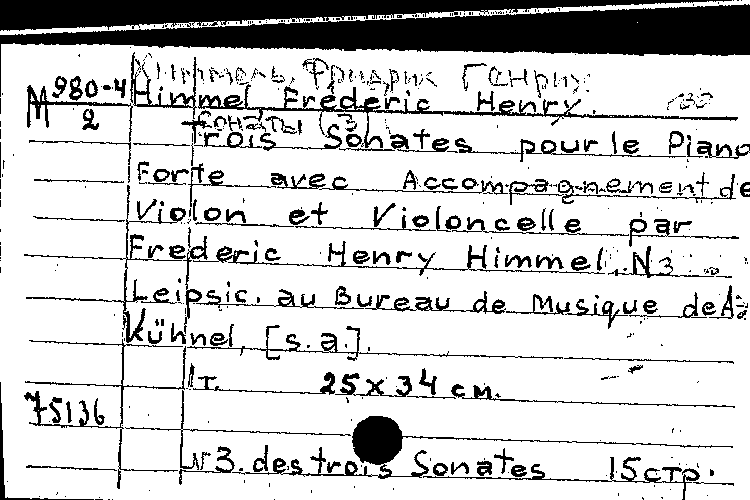 Химмель, Фридрих Генрих
М 980-4 Himmel Frederic Henry.
2 Сонаты (3)
trois Sonates pour le Piano
Forte avec Accompagnement de
Violon et Violoncelle par
Frederic Henry Himmel. N3
Leipsic. au Bureau de Musique de A.
Kühnel, [s.a.].
1т. 25 x 34 см.
75136
N 3. des trois Sonates 15 стр.